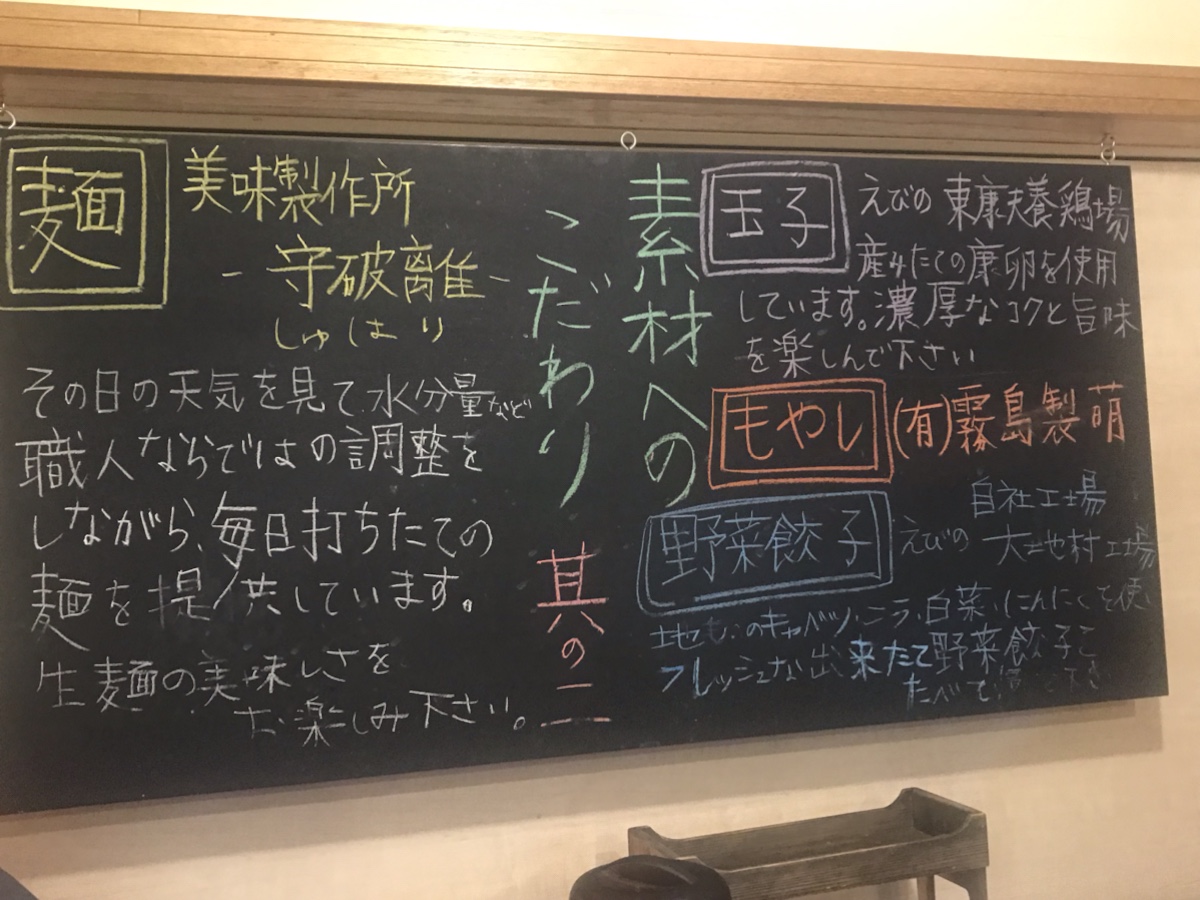 素材への
こだわり
其の二
玉子
えびの 東康夫養鶏場
産みたての康卵を使用
しています。濃厚なコクと旨味
を楽しんで下さい
もやし
(有)霧島製萌
野菜餃子
自社工場
えびの 大地村工場
地もののキャベツ、ニラ、白菜、にんにくを使い
フレッシュな出来たて野菜餃子を
たべて
麺
美味製作所
-守破離-
しゅはり
その日の天気を見て水分量など
職人ならではの調整を
しながら、毎日打ちたての
麺を提供しています。
生麺の美味しさを
お楽しみ下さい。